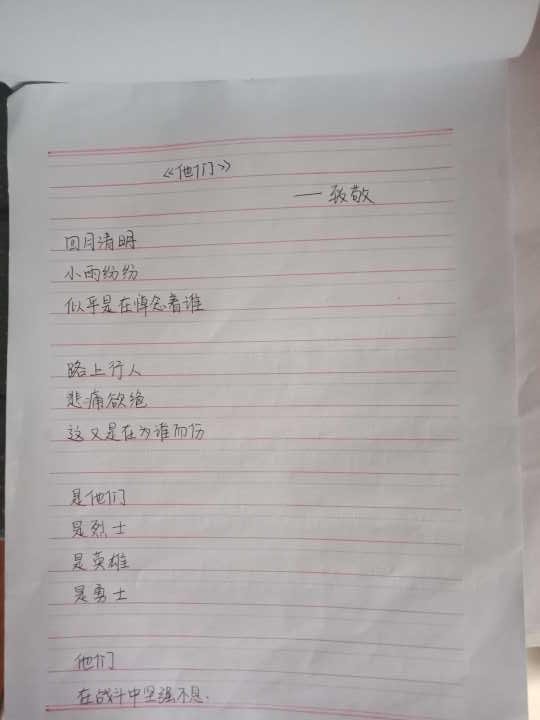 《他们》
——致敬
四月清明
小雨纷纷
似乎是在悼念着谁
路上行人
悲痛欲绝
这又是在为谁而伤
是他们
是烈士
是英雄
是勇士
他们
在战斗中坚强不息.